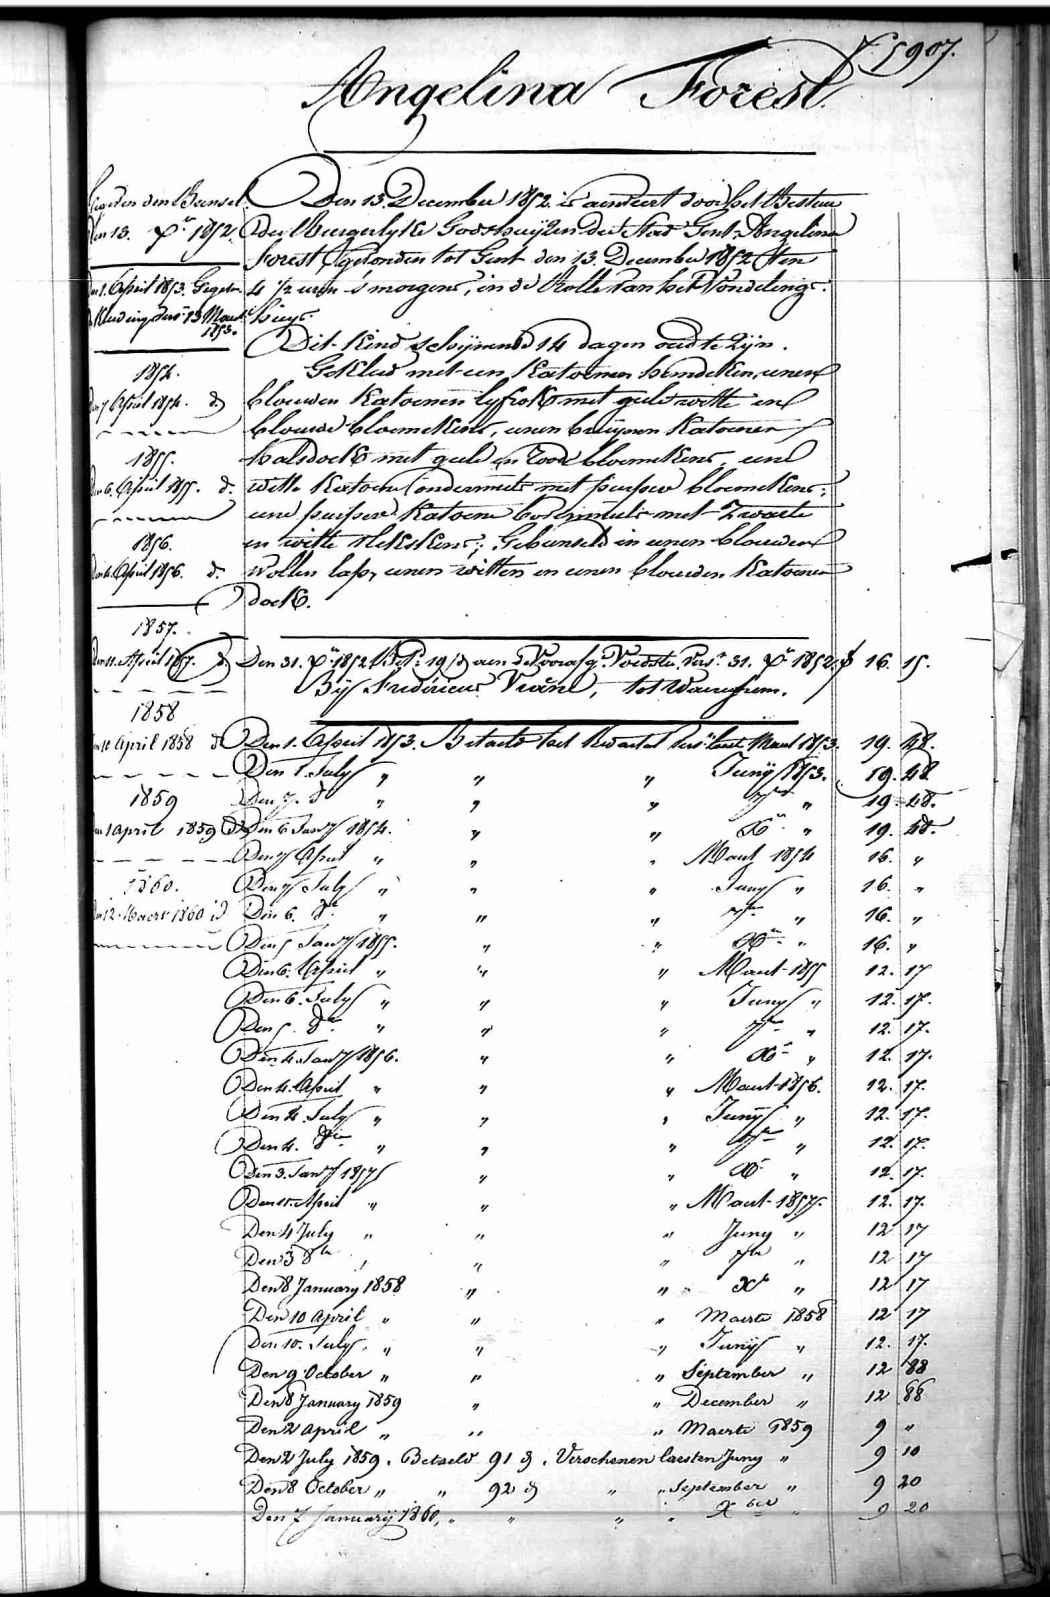 f. 5907.
Angelina Forest.
Gegeven den Bunsel
den 13. Xr 1852.
den 1. April 1853. Gegeven
Kleeding vers. 13 Maert
1853.
1854.
den 7 April 1854. do
1855.
den 6. April 1855. do
1856.
den 4. April 1856. do
1857.
den 11. April 1857. do
1858
den 10 April 1858 do
1859
den 1 april 1859 do
1860.
den 12 Maert 1860 id
Den 13. December 1852. is aenveert door het Bestuer
der Burgerlyke Godshuyzen der Stad Gent, Angelina
Forest, gevonden tot Gent den 13. December 1852 ten
4 1/2 uren s'morgens, in de Rolle van het Vondelings-
huys.
Dit kind schynende 14 dagen oud te zyn.
Gekleed met een Katoenen hemdeken, eenen
blauwen Katoenen lyfrok met geele witte en
blauwe bloemekens, eenen bruynen Katoenen
halsdoek met geele en roode bloemekens, eene
witte Katoene ondermuts met purper bloemekens;
eene purper Katoene bovenmuts met zwarte
en witte stekskens; Gebunseld in eenen blauwen
wollen lap, eenen witten en eenen blauwen Katoenen
doek.
Den 31. Xr 1852 Bet. 19 d aen de Voorafg. Voedster vers. 31. Xr 1852. f 16. 15.
By Fréderica Vroône, tot Waereghem.
Den 1. April 1853. Betaelt het Kwartael vers. laest Maert 1853. 19. 48.
Den 1. July " " " Juny 1853. 19. 48
Den 7. do " " " 7re " 19. 48.
Den 6 Jany 1854. " " Xr " 19. 48.
Den 7 April " " " Maert 1854 16. "
Den 7 July " " " Juny " 16. "
Den 6. 8re " " " 7re " 16. "
Den 5 Jany 1855. " " Xr " 16. "
Den 6. April " " " Maert 1855 12. 17
Den 6. July " " " Juny " 12. 17.
Den 5. 8re " " " 7re " 12. 17.
Den 4. Jany 1856. " " Xr " 12. 17.
Den 4. April " " " Maert 1856. 12. 17.
Den 4. July " " " Juny " 12. 17.
Den 4. 8re " " " 7re " 12. 17.
Den 3. Jany 1857 " " Xr " 12. 17.
Den 11. April " " " Maert 1857. 12. 17.
Den 4 July " " " Juny " 12 17
Den 3 8re " " " 7re " 12 17
Den 8 January 1858 " " Xr " 12 17
Den 10 April " " " Maerte 1858 12 17
Den 10. July " " " Juny " 12. 17.
Den 9 October " " " September " 12 88
Den 8 January 1859 " " December " 12 88
Den 2 april " " " Maerte 1859 9 "
Den 2 July 1859. Betaeld 91 d, Verschenen laesten Juny " 9 10
Den 8 October " " 92 d " " September " 9 20
Den 7 January 1860, " " " " Xber " 9 20